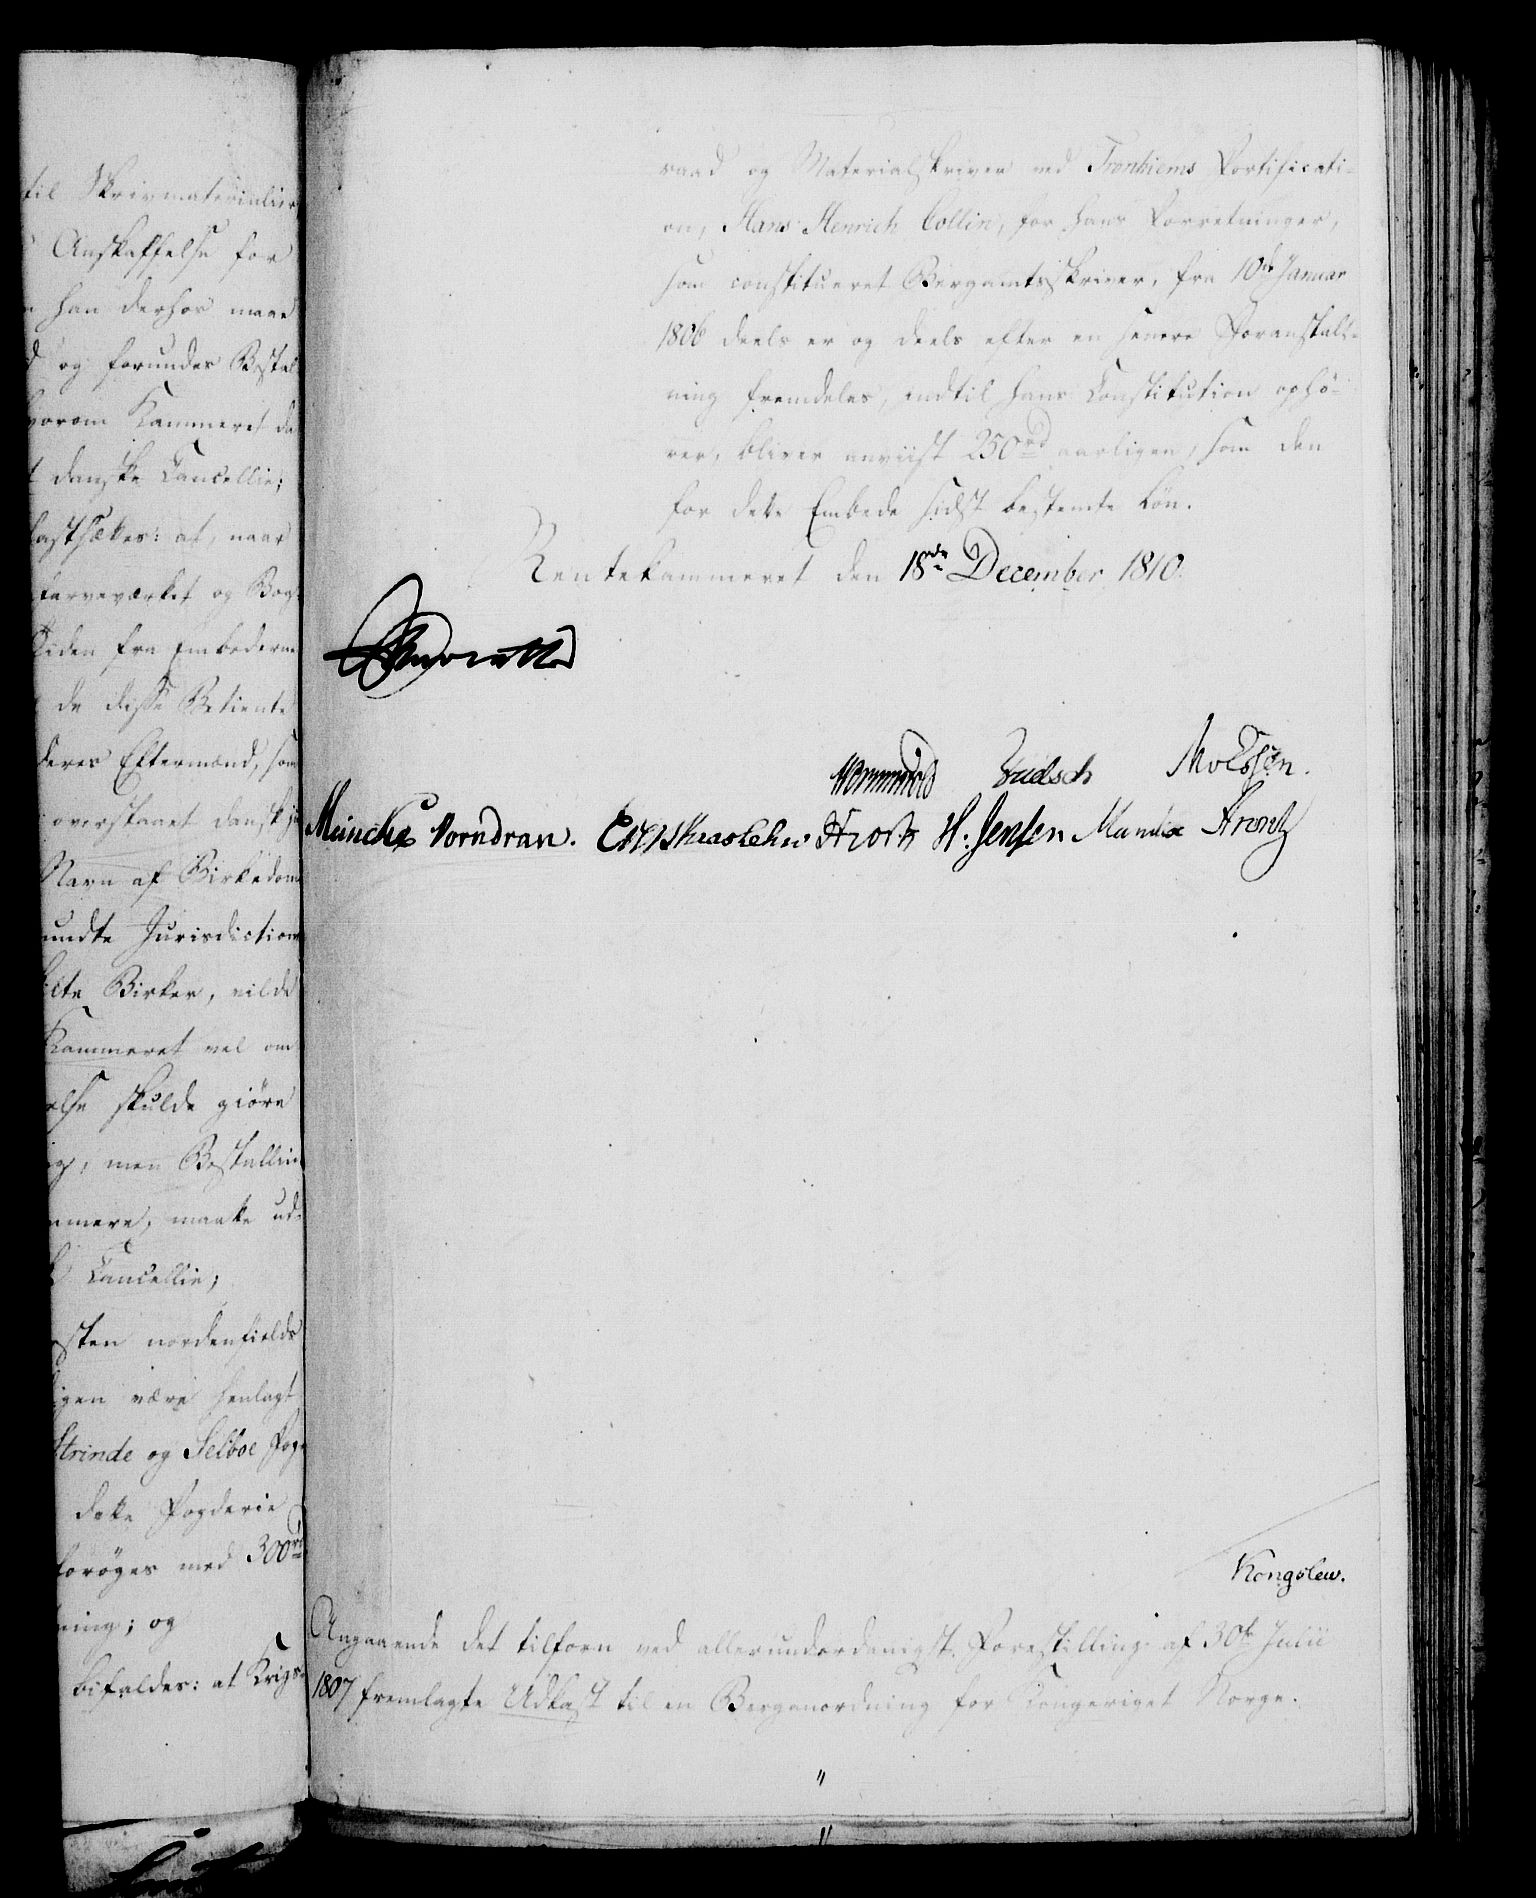 til Skrivmaterialier
Anskaffelse for
han derhos maae
og forundes Bestal
hvorom Kammeret da
danske Cancellie;
fastsættes: at, naar
Farveværket og Bog
Tiden fra Embederne
de disse Betiente
deres Eftermænd, som
overstaaet dansk ju
Navn af Birkedom
undte Jurisdiction
Birker, vilde
Kammeret vel om
else skulde giöre
men Bestallin
mere, maatte ud-
Cancellie;
sten nordenfields
igen være henlagt
Strinde og Selboe Fog-
dette Fogderie
forøges med 300rd
ning; og
bifaldes: at Krigs-
raad og Materialskriver ved Tronhiems Fortificati-
on, Hans Henrich Collin, for hans Forretninger,
som constitueret Bergamtsskriver, fra 10de Januar
1806 deels er og deels efter en senere Foranstalt-
ning fremdeles, indtil hans Constitution ophö-
rer, bliver anviist 250rd aarligen, som den
for dette Embede sidst bestemte Lön.
Rentekammeret den 18de December 1810.
Wormskiold Knudsen Moldsen.
Munch Vorndran. H. Jensen Manthe Arentz
Kongslew.
Angaaende det tilforn ved allerunderdanigst Forestilling af 30te Julii
1807 fremlagte Udkast til en Berganordning for Kongeriget Norge.